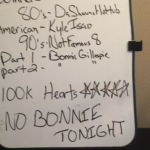 80's - DaShaunHottub
American - KyleIsao
90's - NotFamous8
Part 1 - Bonnie Gillespie
part 2 - " "
100K Hearts ☆☆☆☆☆
NO BONNIE
TONIGHT